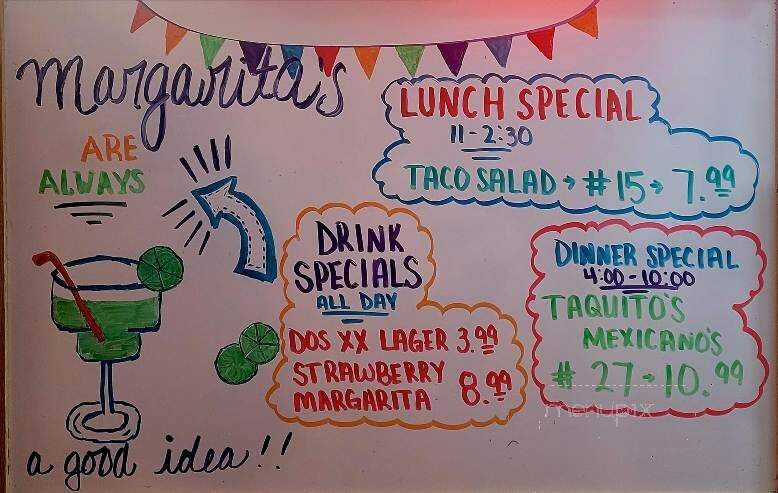 Margarita's
ARE
ALWAYS
a good idea!!
LUNCH SPECIAL
11-2:30
TACO SALAD → #15 → 7.99
DRINK
SPECIALS
ALL DAY
DOS XX LAGER 3.99
STRAWBERRY
MARGARITA 8.99
DINNER SPECIAL
4:00-10:00
TAQUITO'S
MEXICANO'S
# 27 → 10.99
menupix